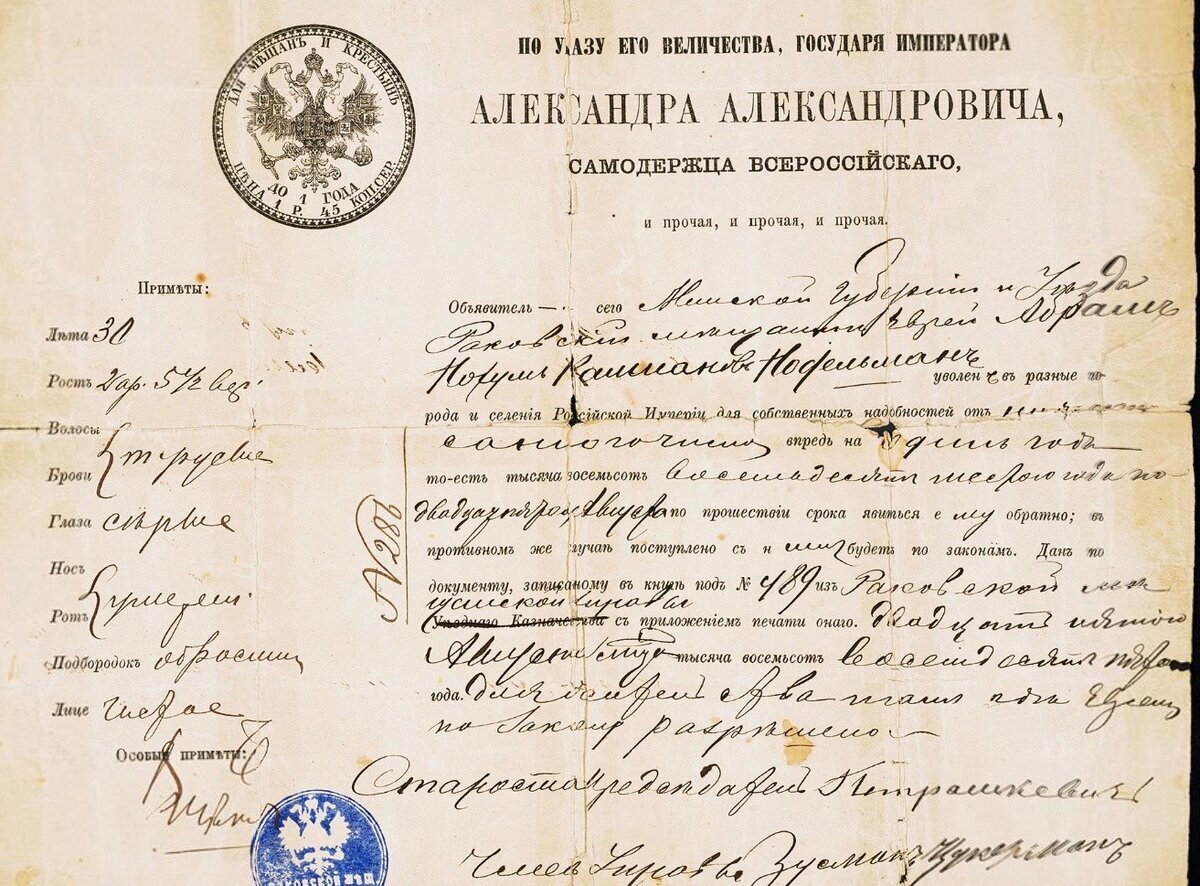 ДЛЯ МѢЩАНЪ И КРЕСТЬЯНЪ
ДО 1 ГОДА
ЦѢНА 1 Р. 45 КОП. СЕР.
ПО УКАЗУ ЕГО ВЕЛИЧЕСТВА, ГОСУДАРЯ ИМПЕРАТОРА
АЛЕКСАНДРА АЛЕКСАНДРОВИЧА,
САМОДЕРЖЦА ВСЕРОССІЙСКАГО,
и прочая, и прочая, и прочая.
Примѣты:
Лѣта 30
Ростъ 2 ар. 5 1/2 вер.
Волосы
Брови т. русые
Глаза сѣрые
Носъ
Ротъ умѣрен.
Подбородокъ обросшій
Лице чистое
Особыя примѣты:
№ 286
Объявитель сего Минской Губерніи и Уѣзда
Раковскій мѣщанинъ Еврей Абрамъ
Нохумъ Нофельманъ уволенъ въ разные го
рода и селенія Россійской Имперіи для собственныхъ надобностей отъ
саногочисла впредь на одинъ годъ
то-есть тысяча восемьсотъ восемьдесятъ шестого года по
двадцать пятое Августа по прошествіи срока явиться ему обратно; въ
противномъ же случаѣ поступлено съ нимъ будетъ по законамъ. Данъ по
документу, записаному въ книгѣ подъ № 489 изъ Раковской мѣ
щанской Управы
Уѣзднаго Казначейства съ приложеніемъ печати онаго. Двадцать пятого
Августа тысяча восемьсотъ восемьдесятъ пятаго
года. для тамъ гдѣ Евреямъ
по закону разрѣшено
Староста Предсѣдатель Петрашкевичъ
Членъ Управы Зусманъ Цукерманъ